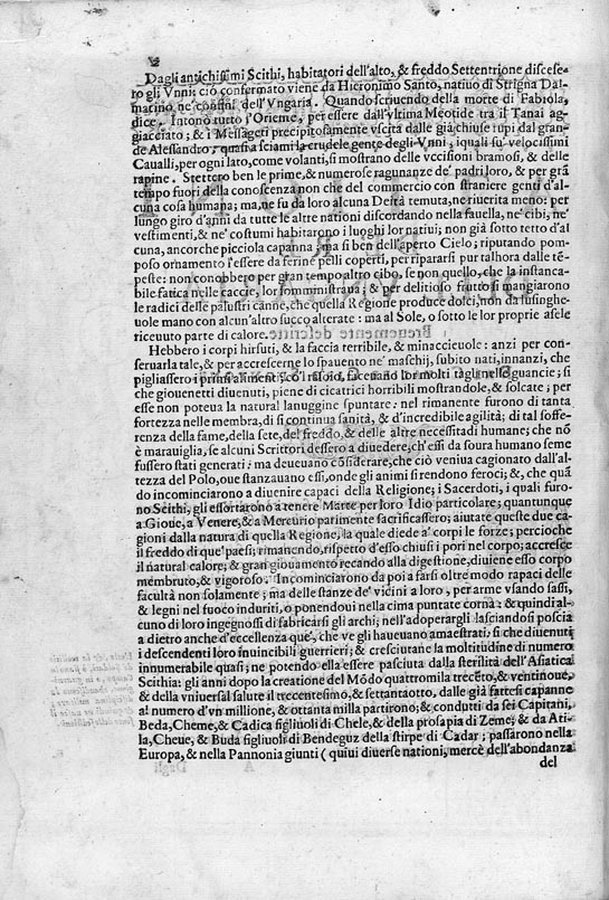 2
Dagli antichissimi Scithi, habitatori dell'alto, & freddo Settentrione discese-
ro gli Vnni: ciò confermato viene da Hieronimo Santo, natiuo di Strigna Dal-
matino ne' confini dell'Vngaria. Quando scriuendo della morte di Fabiola,
dice. Intono tutto l'Oriente, per essere dall'vltima Meotide tra il Tanai ag-
giacciato; & i Messageti precipitosamente vscita dalle già chiuse rupi dal gran-
de Alessandro, quasi a sciami la crudele gente degli Vnni; i quali su' velocissimi
Caualli, per ogni lato, come volanti, si mostrano delle vccisioni bramosi, & delle
rapine. Stettero ben le prime, & numerose ragunanze de' padri loro, & per grā
tempo fuori della conoscenza non che del commercio con straniere genti d'al-
cuna cosa humana; ma, ne fu da loro alcuna Deità temuta, ne riuerita meno: per
lungo giro d'anni da tutte le altre nationi discordando nella fauella, ne' cibi, ne'
vestimenti, & ne' costumi habitarono i luoghi lor natiui; non già sotto tetto d'al
cuna, ancorche picciola capanna; ma si ben dell'aperto Cielo; riputando pom-
poso ornamento l'essere da ferine pelli coperti, per ripararsi pur talhora dalle tē-
peste: non conobbero per gran tempo altro cibo, se non quello, che la instanca-
bile fatica nelle caccie, lor somministraua; & per delitioso frutto si mangiarono
le radici delle palustri canne, che quella Regione produce dolci, non da lusinghe-
uole mano con alcun'altro succo alterate: ma al Sole, o sotto le lor proprie asele
riceuuto parte di calore.
Hebbero i corpi hirsuti, & la faccia terribile, & minaccieuole: anzi per con-
seruarla tale, & per accrescerne lo spauento ne' maschij, subito nati, innanzi, che
pigliassero i primi alimenti; co'l rasoio, faceuano lor molti tagli nelle guancie; si
che giouenetti diuenuti, piene di cicatrici horribili mostrandole, & solcate; per
esse non poteua la natural lanuggine spuntare: nel rimanente furono di tanta
fortezza nelle membra, di si continua sanità, & d'incredibile agilità; di tal soffe-
renza della fame, della sete, del freddo, & delle altre necessitadi humane; che nō
è marauiglia, se alcuni Scrittori dessero a diuedere, ch'essi da soura humano seme
fussero stati generati: ma deueuano cōsiderare, che ciò veniua cagionato dall'al-
tezza del Polo, oue stanzauano essi, onde gli animi si rendono feroci; &, che quā
do incominciarono a diuenire capaci della Religione; i Sacerdoti, i quali furo-
no Scithi, gli essortarono a tenere Marte per loro Idio particolare; quantunque
a Gioue, a Venere, & a Mercurio parimente sacrificassero; aiutate queste due ca-
gioni dalla natura di quella Regione, la quale diede a' corpi le forze; percioche
il freddo di que' paesi; rimanendo, rispetto d'esso chiusi i pori nel corpo; accresce
il natural calore; & gran giouamento recando alla digestione, diuiene esso corpo
membruto, & vigoroso. Incominciarono da poi a farsi oltre modo rapaci delle
facultà non solamente; ma delle stanze de' vicini a loro, per arme vsando sassi,
& legni nel fuoco induriti, o ponendoui nella cima puntate corna: & quindi al-
cuno di loro ingegnossi di fabricarsi gli archi; nell'adoperargli lasciandosi poscia
a dietro anche d'eccellenza que', che ve gli haueuano amaestrati; si che diuenuti
i descendenti loro inuincibili guerrieri; & cresciutane la moltitudine di numero
innumerabile quasi; ne potendo ella essere pasciuta dalla sterilità dell'Asiatica
Scithia: gli anni dopo la creatione del Mōdo quattromila trecēto, & ventinoue,
& della vniuersal salute il trecentesimo, & settantaotto, dalle già fattesi capanne
al numero d'vn millione, & ottanta milla partirono; & condutti da sei Capitani,
Beda, Cheme, & Cadica figliuoli di Chele, & della prosapia di Zeme; & da Ati-
la, Cheue, & Buda figliuoli di Bendeguz della stirpe di Cadar; passarono nella
Europa, & nella Pannonia giunti (quiui diuerse nationi, mercè dell'abondanza
del